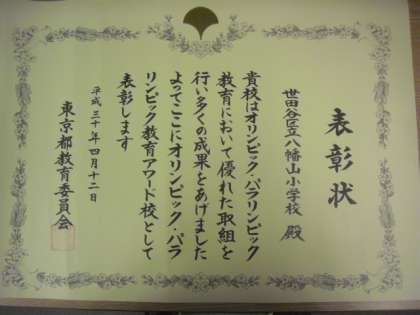 表彰状
世田谷区立八幡山小学校 殿
貴校はオリンピック・パラリンピック
教育において優れた取組を
行い多くの成果をあげました
よってここにオリンピック・パラ
リンピック教育アワード校として
表彰します
平成三十年四月十二日
東京都教育委員会